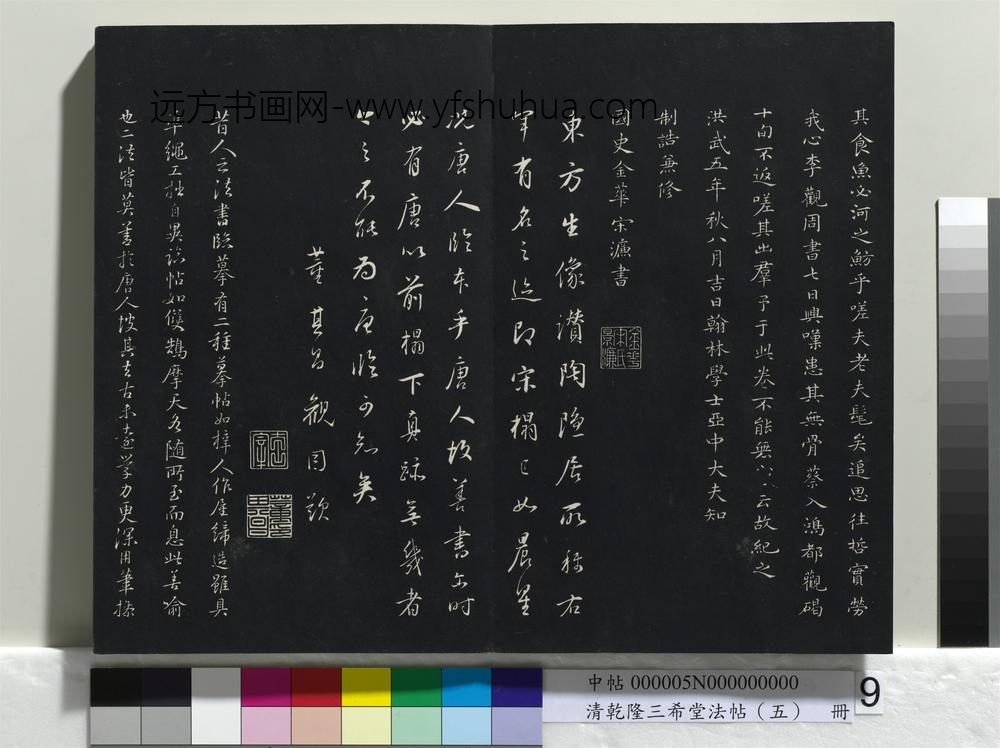 其食魚必河之魴乎嗟夫老夫髦矣追思往哲實勞
我心李觀周書七日興嘆患其無骨蔡入鴻都觀碣
十旬不返嗟其出羣予于此卷不能無云故紀之
洪武五年秋八月吉日翰林學士亞中大夫知
制誥兼修
國史金華宋濂書
金華宋氏景濂
東方生像讚陶隱居所稱右
軍有名之迹即宋榻已如晨星
況唐人臨本乎唐人故善書尔時
必有唐以前榻下真跡無幾者
之不能為唐臨可知矣
董其昌觀因題
昔人云法書臨摹有二種摹帖如梓人作屋締造雖具
準繩工拙自異臨帖如雙鵠摩天各隨所至而息此善喻
也二法皆莫善於唐人彼其去古未遠學力更深用筆
远方书画网-www.yfshuhua.com
中帖 000005N000000000
清乾隆三希堂法帖（五） 冊
9